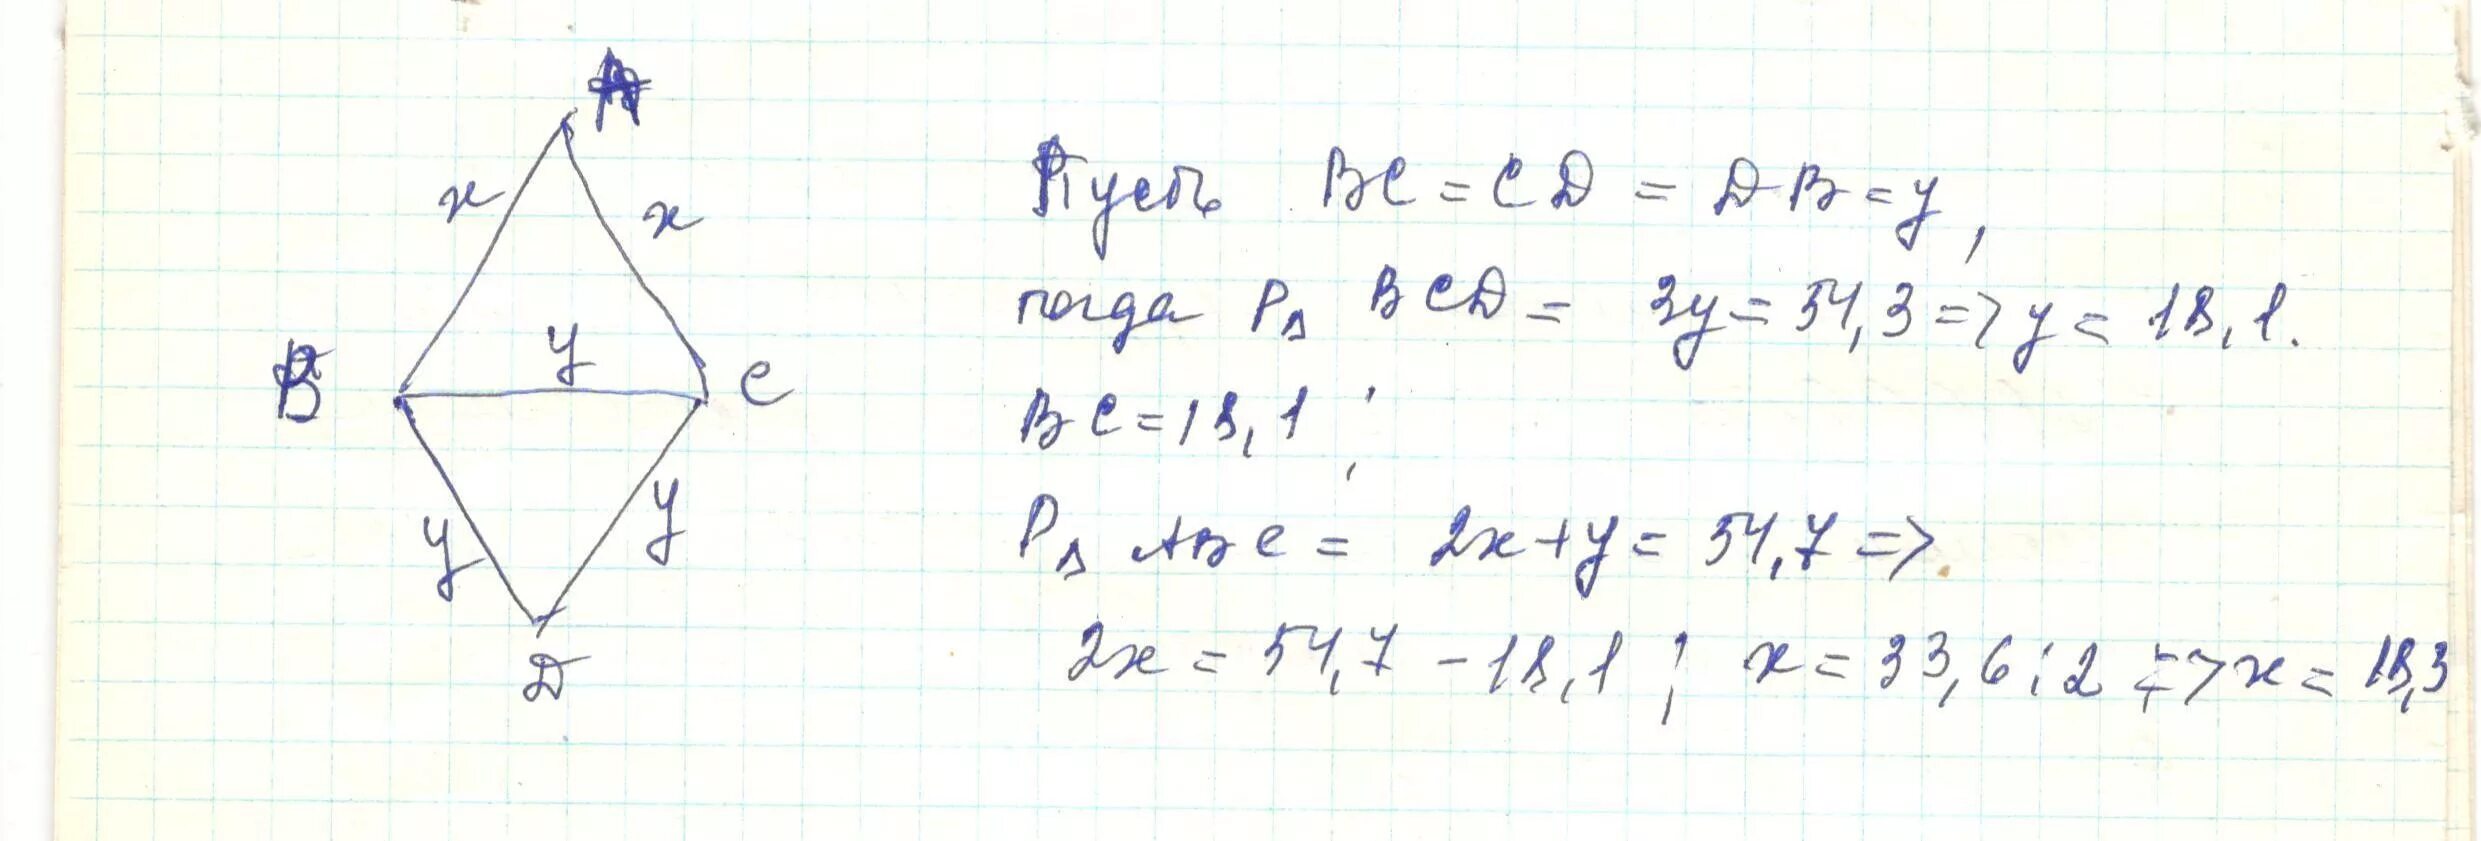 A
x
x
Пусть BC = CD = DB = y,
тогда P△ BCD = 3y = 54,3 => y = 18,1.
B
y
C
BC = 18,1;
y
y
P△ ABC = 2x + y = 54,7 =>
D
2x = 54,7 - 18,1; x = 33,6 : 2 => x = 18,3